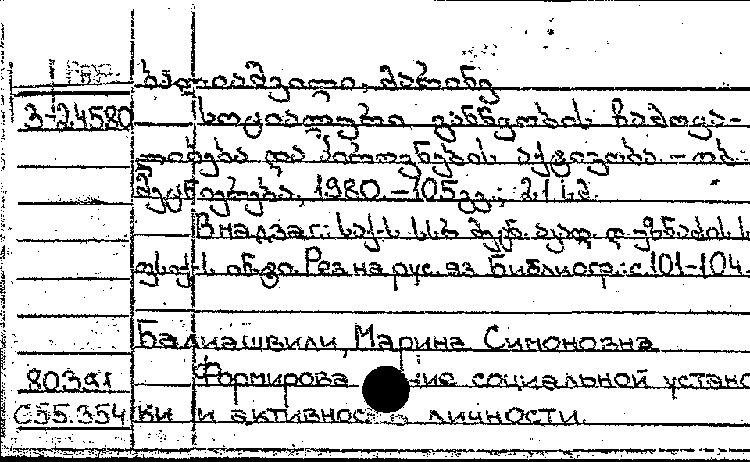 ბალიაშვილი, მარინე
3-24580 სოციალური განწყობის ჩამოყა-
ლიბება და პიროვნების აქტივობა. – თბ.:
მეცნიერება, 1980. – 105 გვ.; 21 სმ.
В надзаг.: საქ-ს სსრ მეცნ. აკად. დ. უზნაძის ს.
ფსიქ-ს ინ-ტი. Рез. на рус. яз. Библиогр.: с. 101-104.
Балиашвили, Марина Симоновна
80391 Формирование социальной устано
С55.354 ки и активность личности.